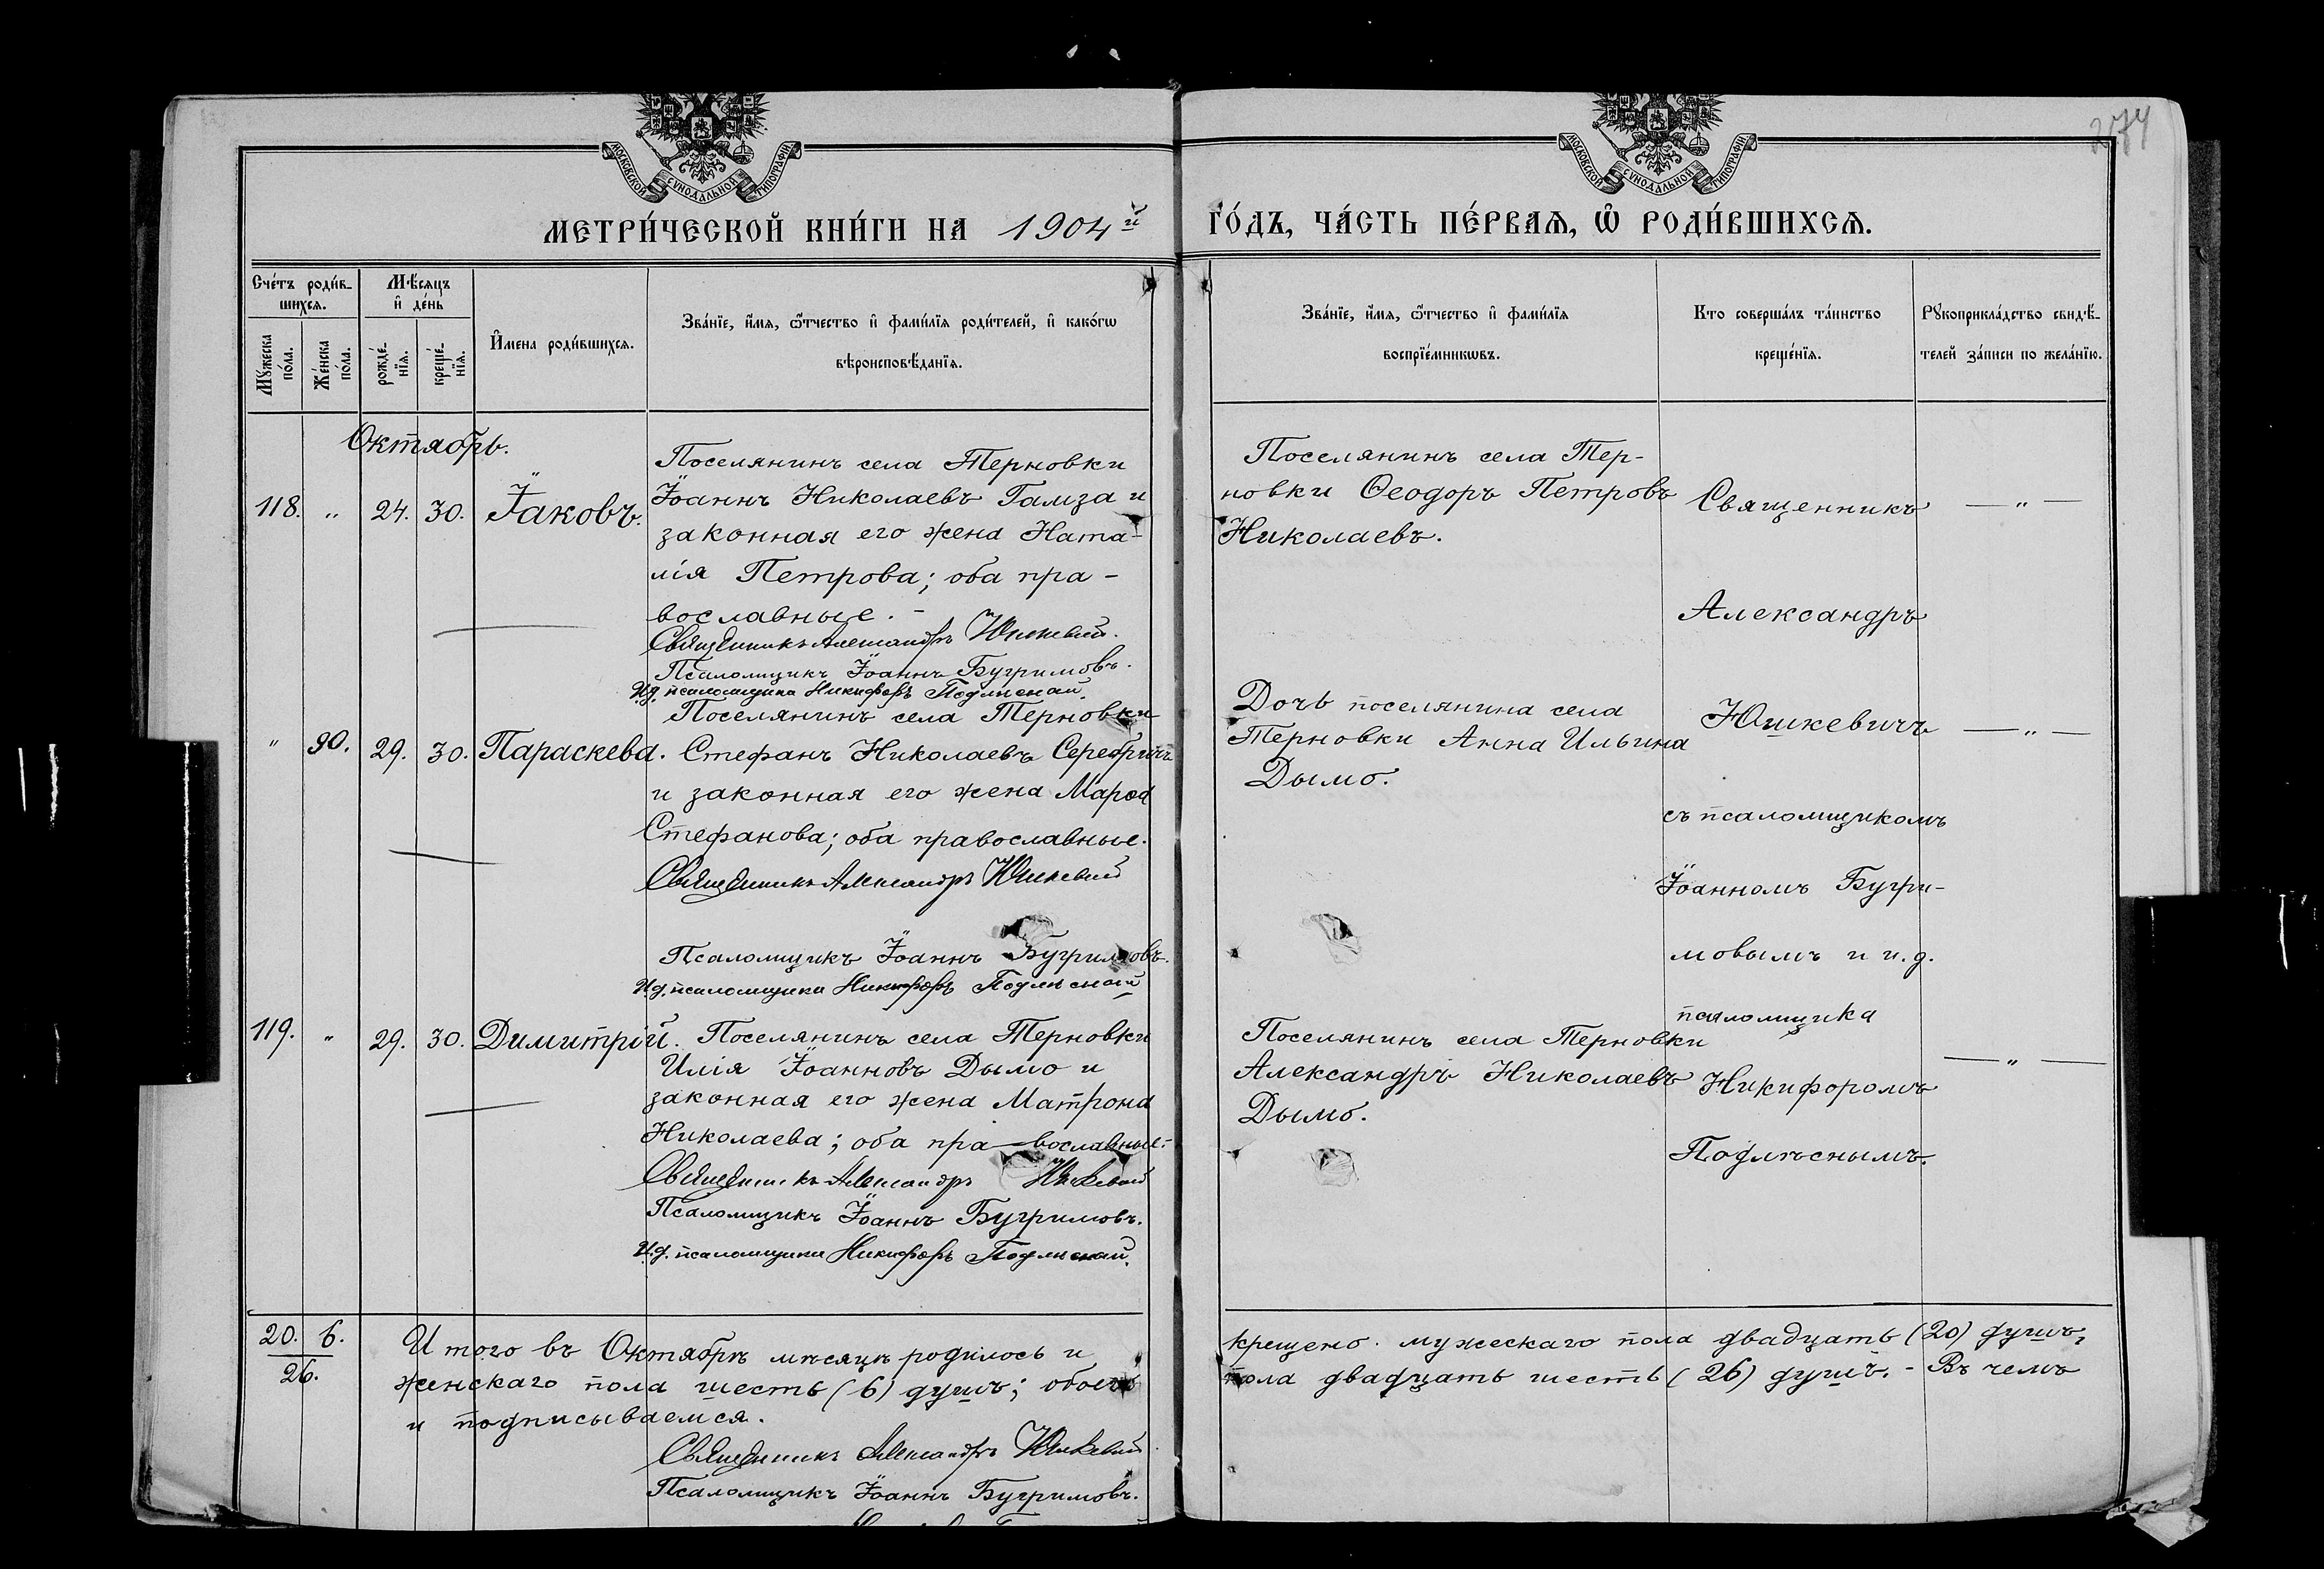 274
МОСКОВСКОЙ СУНОДАЛЬНОЙ ТИПОГРАФІИ
МОСКОВСКОЙ СУНОДАЛЬНОЙ ТИПОГРАФІИ
МЕТРИ́ЧЕСКОЙ КНИ́ГИ НА 1904й
ГО́ДЪ, ЧА́СТЬ ПЕ́РВАѦ, Ѡ РОДИ́ВШИХСѦ.
Сче́тъ роди́в-
шихся.
Мꙋжеска
по́ла.
Же́нска
по́ла.
Мѣ́сяцъ
и де́нь
рожде́-
нїя.
креще́-
нїя.
И҆мена роди́вшихся.
Зва́нїе, и҆́мя, ѻ҆́тчество и҆ фами́лїя роди́телей, и҆ како́гѡ
вѣроисповѣ́данїя.
Зва́нїе, и҆́мя, ѻ҆́тчество и҆ фами́лїя
воспрїе́мникѡвъ.
Кто соверша́лъ та́инство
креще́нїя.
Рꙋкоприкла́дство свидѣ́-
телей за́писи по жела́нїю.
Октябрь.
118. " 24. 30. Іаковъ.
Поселянинъ села Терновки
Іоаннъ Николаевъ Гамза и
законная его жена Ната-
лія Петрова; оба пра-
вославные. -
Священникъ Александръ Юшкевич.
Псаломщикъ Іоаннъ Бугримовъ.
И.д. псаломщика Никифоръ Подлѣсный.
Поселянинъ села Тер-
новки Ѳеодоръ Петровъ
Николаевъ.
" 90. 29. 30. Параскева.
Поселянинъ села Терновки
Стефанъ Николаевъ
и законная его жена Марѳа
Стефанова; оба православные.
Священникъ Александръ Юшкевич
Псаломщикъ Іоаннъ Бугримовъ.
И.д. псаломщика Никифоръ Подлѣсный
Дочь поселянина села
Терновки Анна Ильина
Дымо.
119. " 29. 30. Димитрій.
Поселянинъ села Терновки
Илія Іоанновъ Дымо и
законная его жена Матрона
Николаева; оба пра-вославные.
Священникъ Александръ Юшкевич
Псаломщикъ Іоаннъ Бугримовъ.
И.д. псаломщика Никифоръ Подлѣсный.
Поселянинъ села Терновки
Александръ Николаевъ
Дымо.
Священникъ — " —
Александръ
Юшкевичъ — " —
съ псаломщикомъ
Іоанномъ Бугри-
мовымъ и и.д.
псаломщика
— " —
Никифоромъ
Подлѣснымъ.
20. 6.
26.
Итого въ Октябрѣ мѣсяцѣ родилось и
крещено мужескаго пола двадцать (20) душъ,
женскаго пола шесть (6) душъ; обоего
пола двадцать шесть (26) душъ. - Въ чемъ
и подписываемся.
Священникъ Александръ Юшкевич
Псаломщикъ Іоаннъ Бугримовъ.